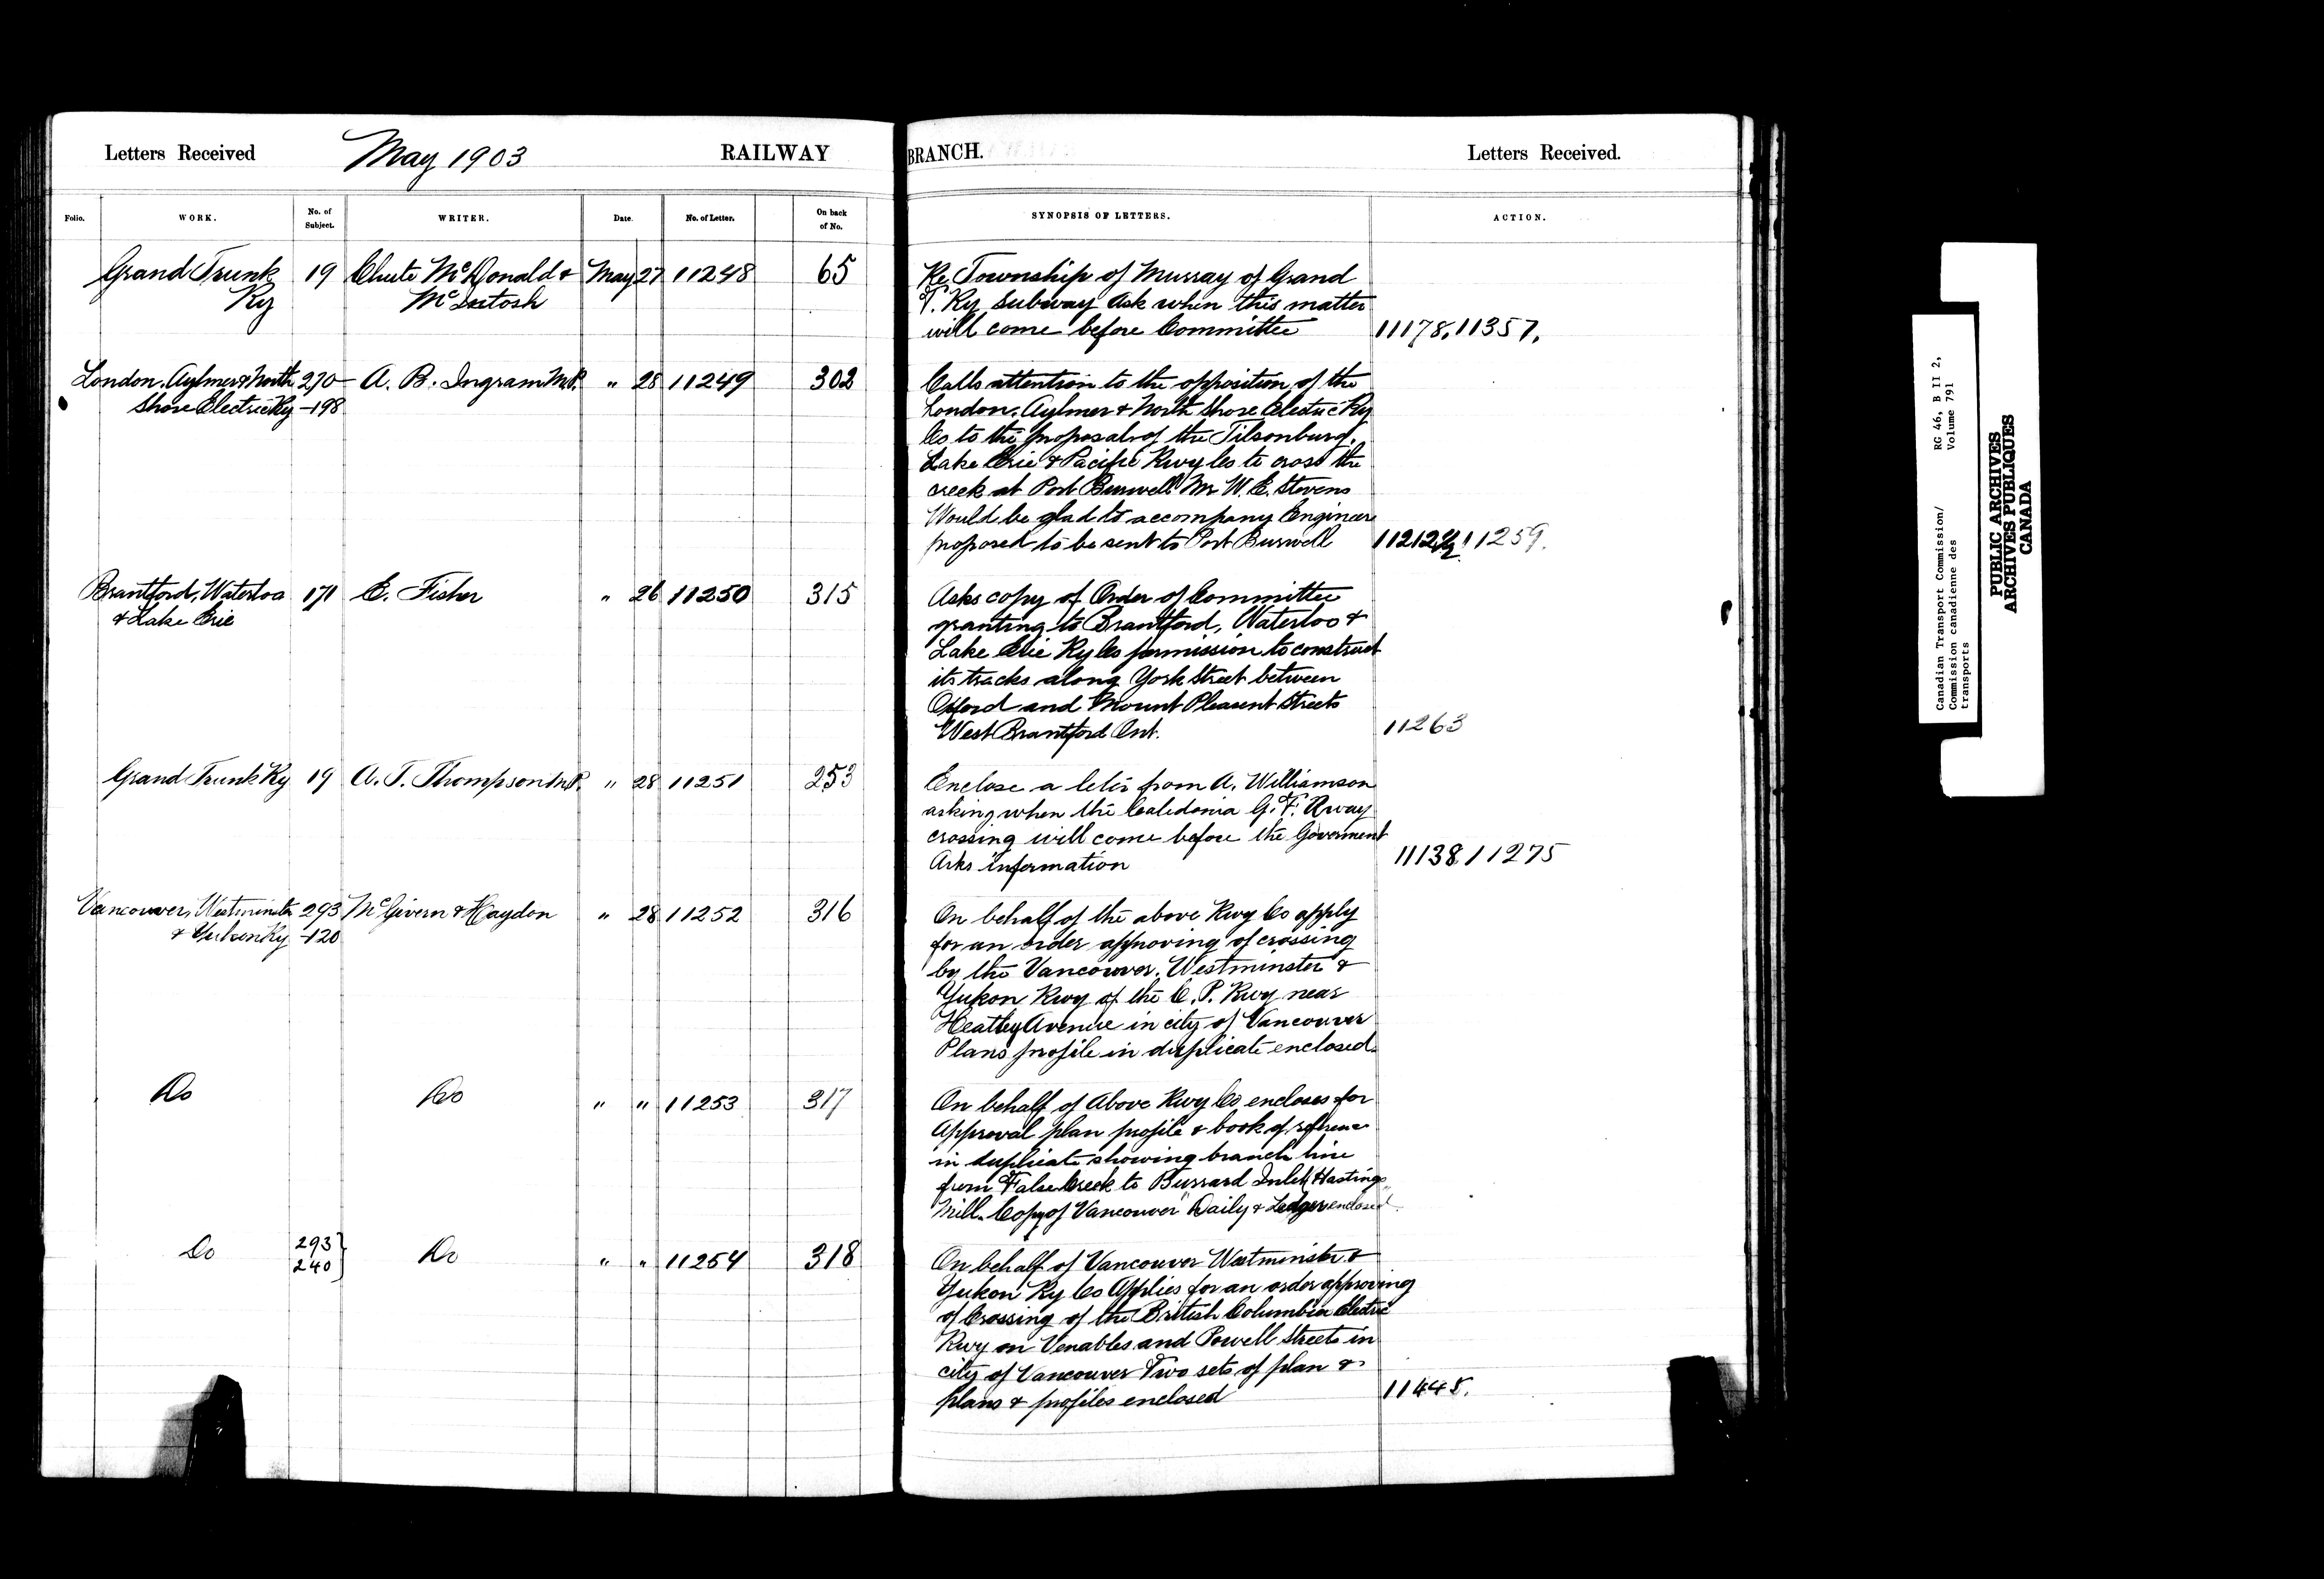 Letters Received May 1903 RAILWAY
Folio. WORK. No. of Subject. WRITER. Date. No. of Letter. On back of No.
Grand Trunk 19 Chute McDonald & May 27 11248 65
Ry McIntosh
London, Aylmer & North 270 A. B. Ingram M.P. " 28 11249 302
Shore Electric Ry -198
Brantford, Waterloo 171 C. Fisher " 26 11250 315
& Lake Erie
Grand Trunk Ry 19 A. T. Thompson M.P. " 28 11251 253
Vancouver, Westminster 293 McGivern & Haydon " 28 11252 316
& Yukon Ry -120
Do Do " " 11253 317
Do 293 Do " " 11254 318
240
BRANCH. Letters Received.
SYNOPSIS OF LETTERS. ACTION.
Re Township of Murray of Grand
T. Ry Subway Ask when this matter
will come before Committee 11178, 11357,
Calls attention to the opposition of the
London, Aylmer & North Shore Electric Ry
Co to the proposal of the Tilsonburg,
Lake Erie & Pacific Rwy Co to cross the
creek at Port Burwell Mr W. E. Stevens
Would be glad to accompany Engineer
proposed to be sent to Port Burwell 11212 11259.
Asks copy of Order of Committee
granting to Brantford, Waterloo &
Lake Erie Ry Co permission to construct
its tracks along York Street between
Oxford and Mount Pleasent Streets
West Brantford Ont. 11263
Enclose a leter from A. Williamson
asking when the Caledonia G. T. Rway
crossing will come before the Goverment
Asks information 11138 11275
On behalf of the above Rwy Co apply
for an order approving of crossing
by the Vancouver, Westminster &
Yukon Rwy of the C. P. Rwy near
Heatley Avenue in city of Vancouver
Plans profile in duplicate enclosed.
On behalf of Above Rwy Co encloses for
Approval plan profile & book of reference
in duplicate showing branch line
from False Creek to Burrard Inlet, Hastings
Mill. Copy of Vancouver "Daily & Ledger" enclosed.
On behalf of Vancouver Westminster &
Yukon Ry Co Applies for an order approving
of Crossing of the British Columbia Electric
Rwy on Venables and Powell Streets in
city of Vancouver Two sets of plan &
plans & profiles enclosed 11445.
Canadian Transport Commission/ RG 46, B II 2,
Commission canadienne des Volume 791
transports
PUBLIC ARCHIVES
ARCHIVES PUBLIQUES
CANADA